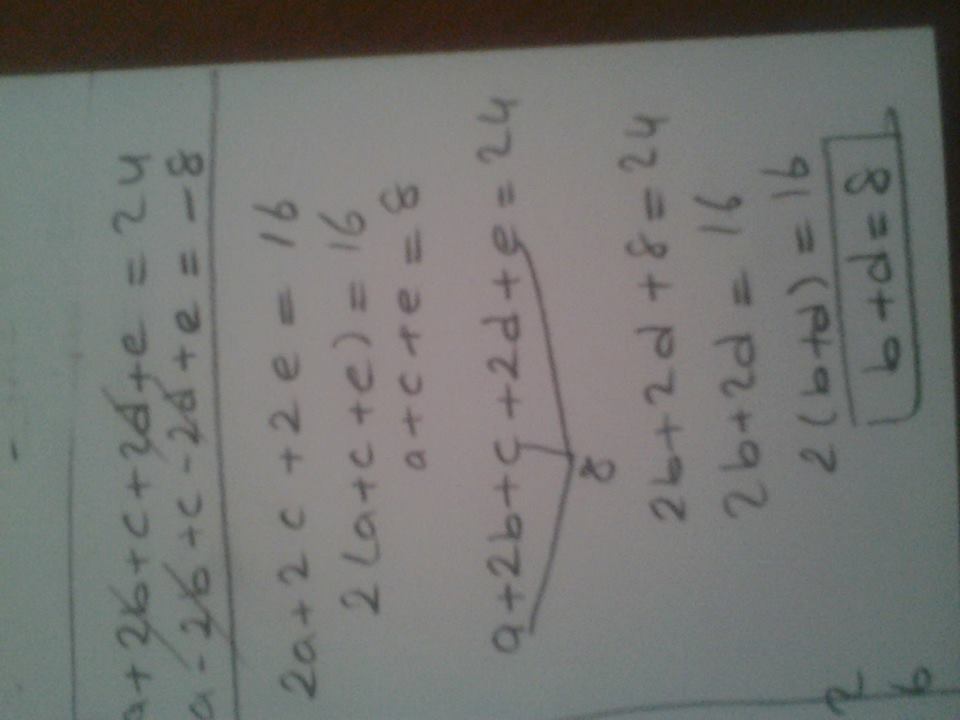 a+2b+c+2d+e = 24
a-2b+c-2d+e = -8
2a+2c+2e = 16
2(a+c+e) = 16
a+c+e = 8
a+2b+c+2d+e = 24
8
2b+2d+8 = 24
2b+2d = 16
2(b+d) = 16
b+d = 8